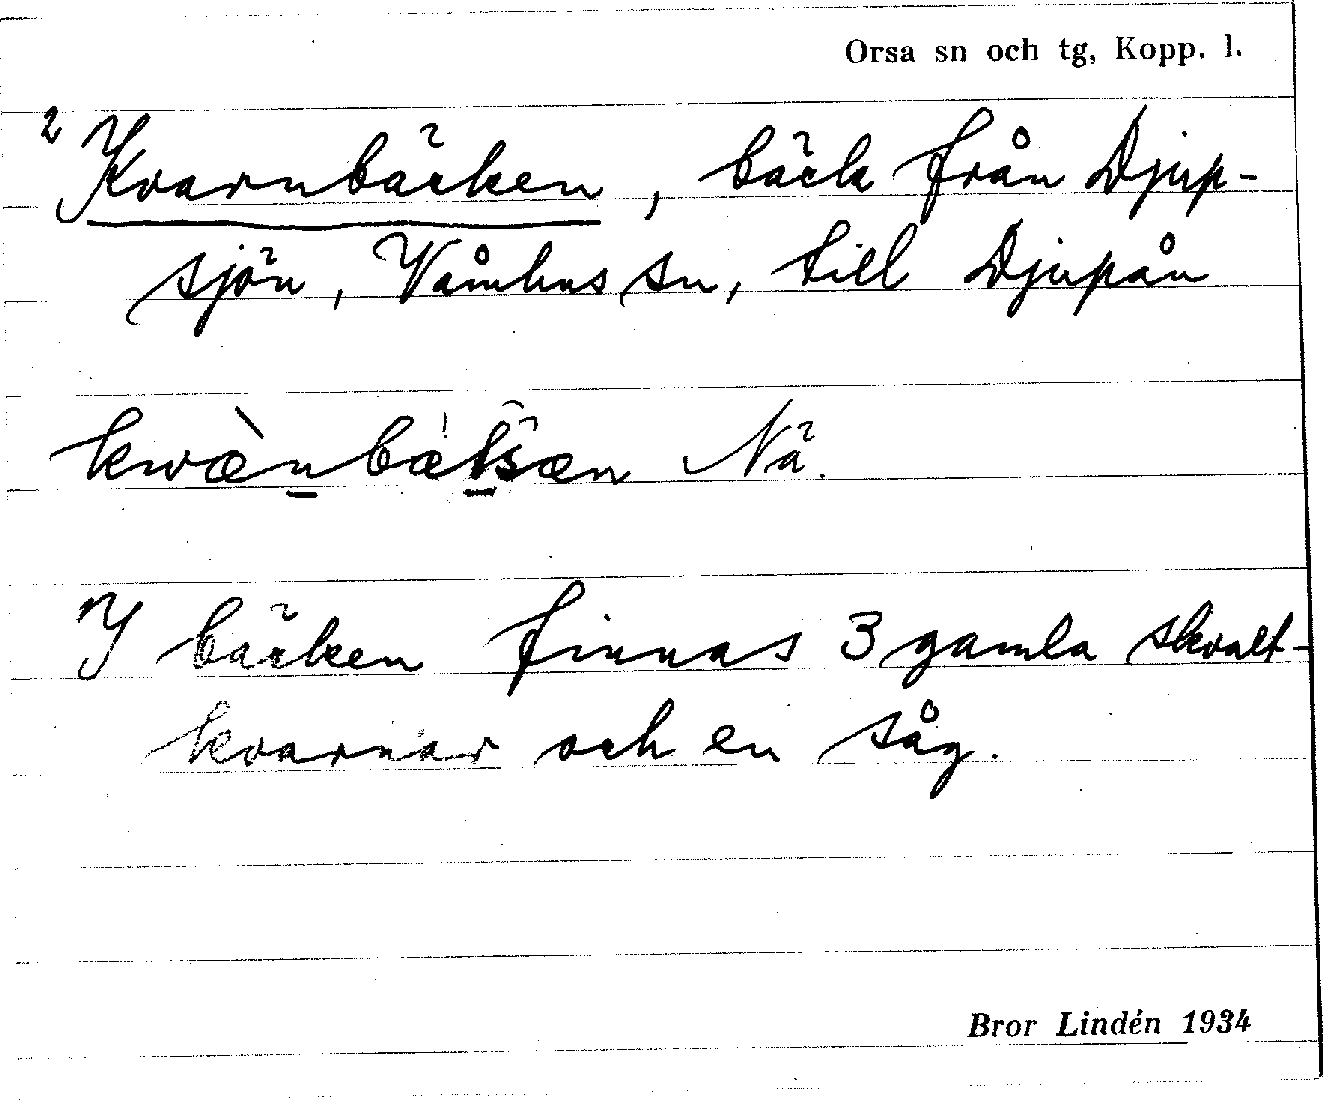 Orsa sn och tg, Kopp. l.
2 Kvarnbäcken, bäck från Djup-
sjön, Våmhus sn, till Djupån
Nä.
I bäcken finnas 3 gamla skvalt-
kvarnar och en såg.
Bror Lindén 1934